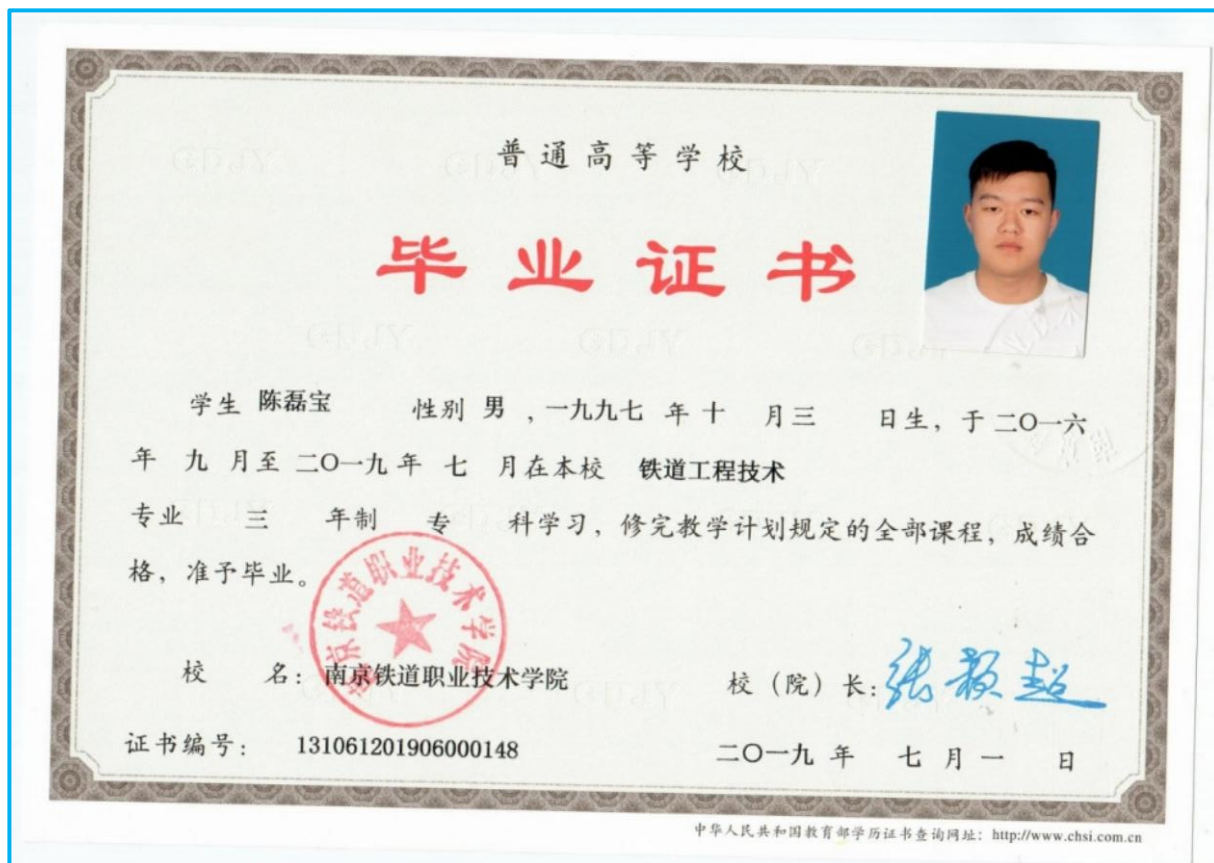 普通高等学校
毕业证书
学生 陈磊宝 性别 男 ,一九九七 年 十 月 三 日生，于 二〇一六
年 九 月至 二〇一九 年 七 月在本校 铁道工程技术
专业 三 年制 专 科学习，修完教学计划规定的全部课程，成绩合
格，准予毕业。
南京铁道职业技术学院
校 名：南京铁道职业技术学院
校（院）长：张颖超
证书编号： 131061201906000148
二〇一九 年 七 月 一 日
中华人民共和国教育部学历证书查询网址：http://www.chsi.com.cn